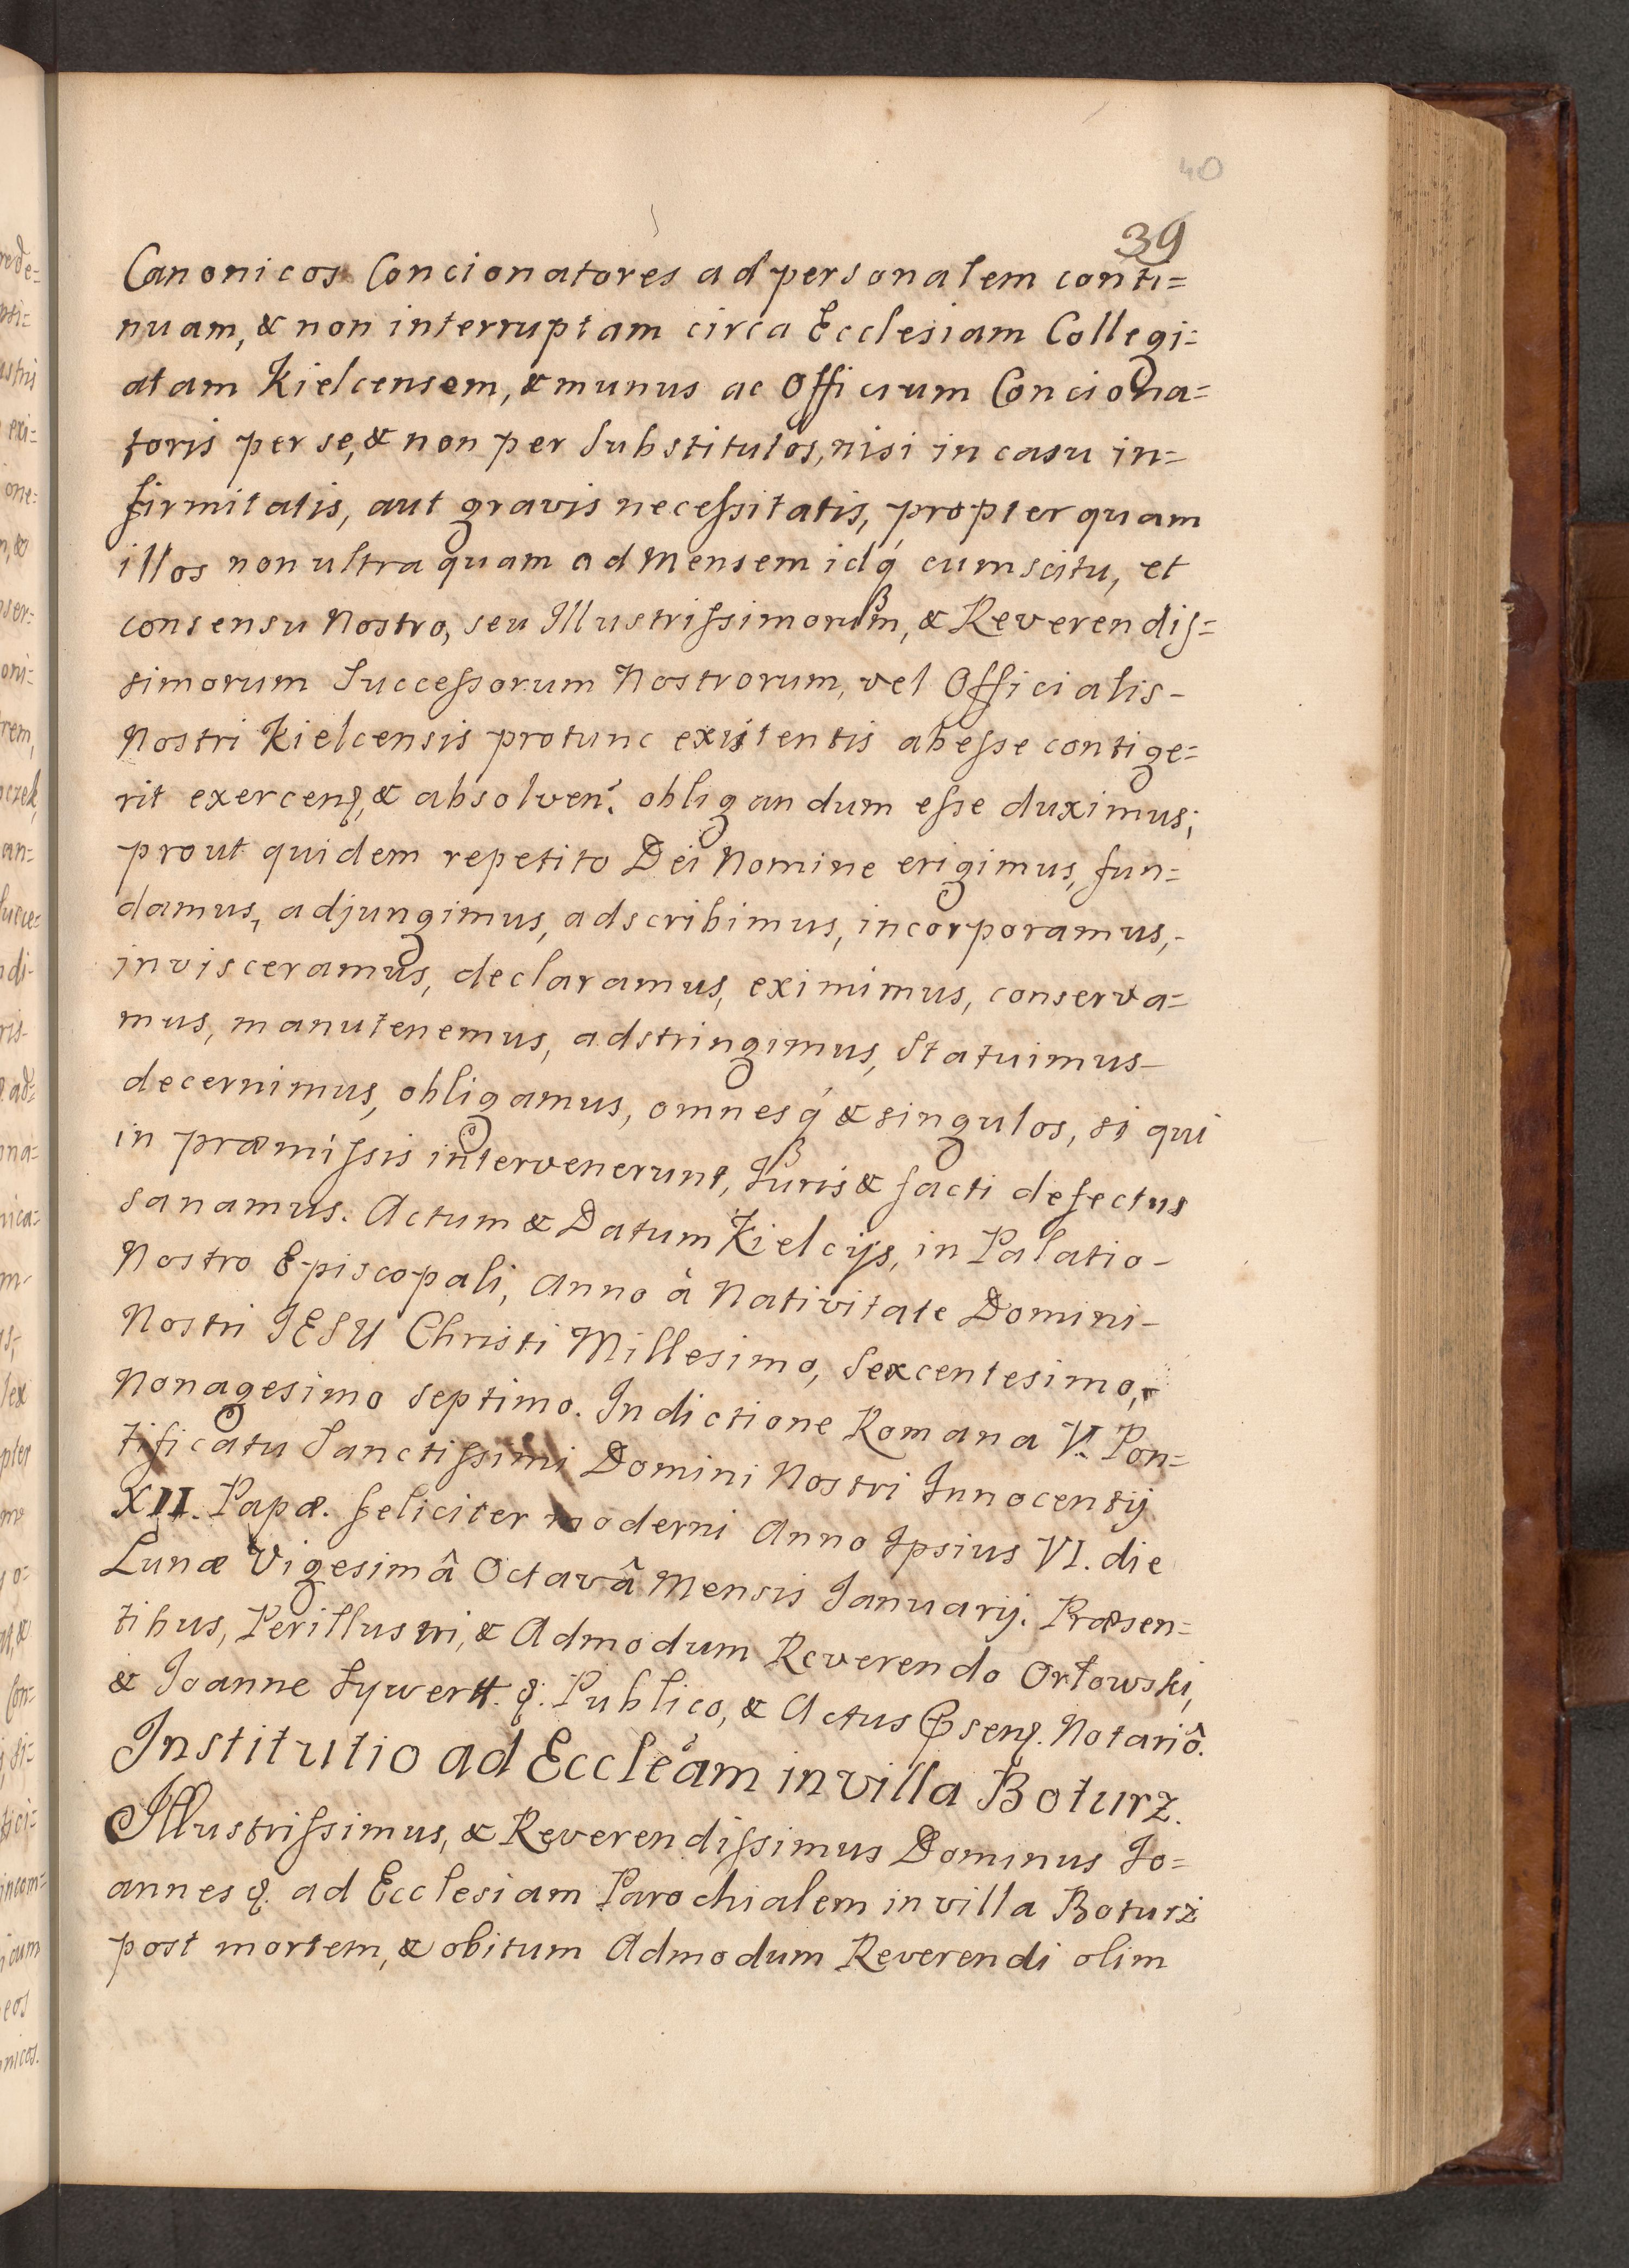 40
39
Canonicos Concionatores ad personalem conti=
nuam, & non interruptam circa Ecclesiam Collegi=
atam Kielcensem, & munus ac Officium Conciona=
toris per se, & non per Substitutos, nisi in casu in=
firmitatis, aut gravis neceſsitatis, propter quam
illos non ultra quam ad Mensem idq́ cum scitu, et
consensu Nostro, seu Illustriſsimorum, & Reverendiſ=
simorum Succeſsorum Nostrorum, vel Officialis-
Nostri Kielcensis protunc existentis abeſse contige=
rit exercenꝗ, & absolven: obligandum eſse duximus;
prout quidem repetito Dei Nomine erigimus, fun=
damus, adjungimus, adscribimus, incorporamus,-
invisceramus, declaramus, eximimus, conserva=
mus, manutenemus, adstringimus, Statuimus-
decernimus, obligamus, omnesq́ & singulos, si qui
in præmiſsis intervenerunt, Juris & facti defectus
sanamus. Actum & Datum Kielcijs, in Palatio-
Nostro Episcopali, Anno à Nativitate Domini-
Nostri IESU Christi Millesimo, Sexcentesimo,-
Nonagesimo Septimo. Indictione Romana V. Pon=
tificatu Sanctiſsimi Domini Nostri Innocentij
XII. Papæ. feliciter moderni Anno Ipsius VI. die
Lunæ Vigesimâ Octavâ Mensis Ianuarij. Præsen=
tibus, Perillustri, & Admodum Reverendo Orłowski,
& Joanne Sywertt. ꝗ. Publico, & Actus Pꝰsenꝗ. Notariô.
Institutio ad Eccleám in villa Boturz.
Illustriſsimus, & Reverendiſsimus Dominus Jo=
annes ꝗ. ad Ecclesiam Parochialem in villa Boturż
post mortem, & obitum Admodum Reverendi olim